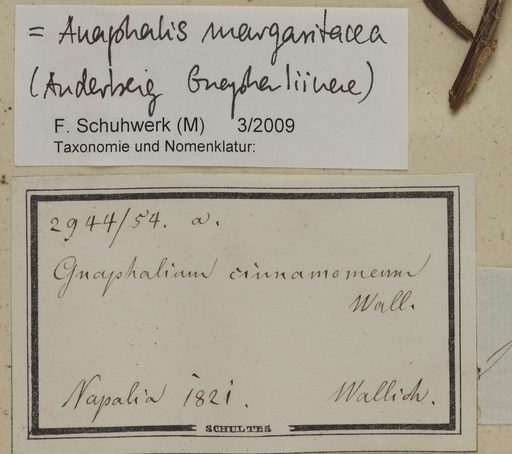 = Anaphalis margaritacea
(Anderberg Gnaphaliinae)
F. Schuhwerk (M) 3/2009
Taxonomie und Nomenklatur:
2944/54. a.
Gnaphalium cinnamomeum
Wall.
Napalia 1821. Wallich.
SCHULTES